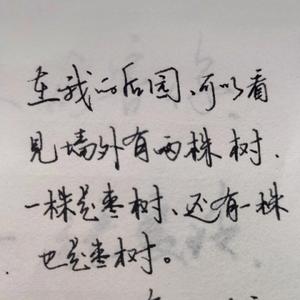 在我的后园、可以看
见墙外有两株树.
一株是枣树、还有一株
也是枣树。